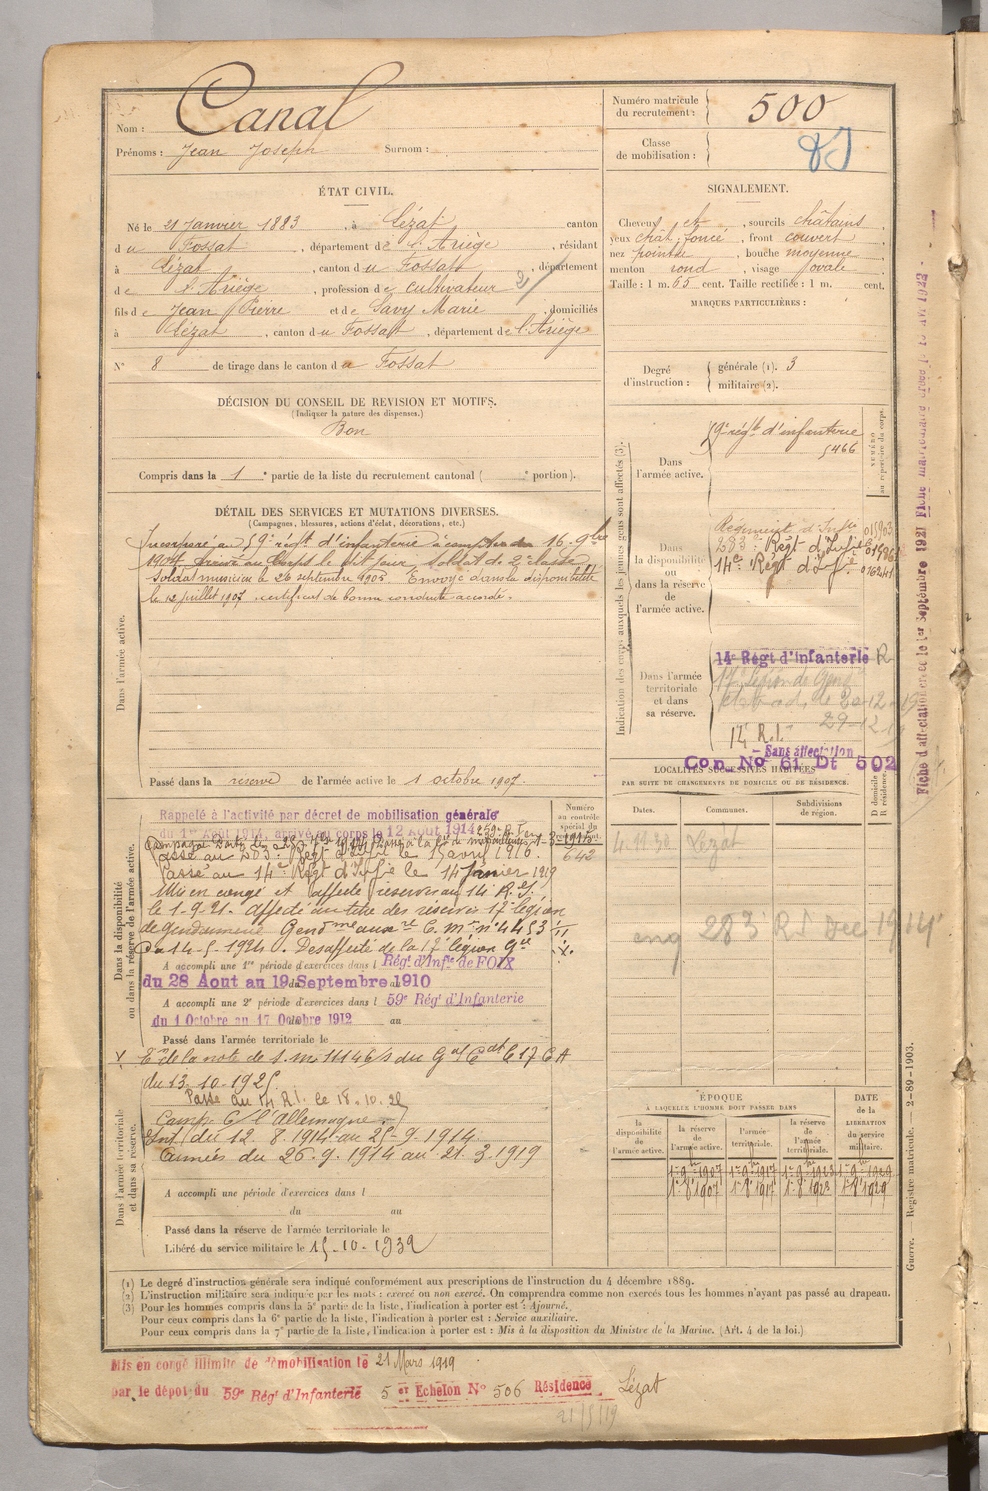 Nom : Canal
Prénoms : Jean Joseph Surnom :
Numéro matricule du recrutement : 500
Classe de mobilisation :
ÉTAT CIVIL.
Né le 21 Janvier 1883, à Lézat, canton
du Fossat, département de l'Ariège, résidant
à Lézat, canton du Fossat, département
de l'Ariège, profession de cultivateur
fils de Jean Pierre et de Savy Marie, domiciliés
à Lézat, canton du Fossat, département de l'Ariège
N° 8 de tirage dans le canton du Fossat
SIGNALEMENT.
Cheveux et, sourcils châtains,
yeux chat. foncé, front couvert,
nez pointu, bouche moyenne
menton rond, visage ovale
Taille : 1 m. 65 cent. Taille rectifiée : 1 m. cent.
MARQUES PARTICULIÈRES :
Degré d'instruction :
générale (1). 3
militaire (2).
DÉCISION DU CONSEIL DE REVISION ET MOTIFS.
(Indiquer la nature des dispenses.)
Bon
Compris dans la 1e partie de la liste du recrutement cantonal ( e portion).
DÉTAIL DES SERVICES ET MUTATIONS DIVERSES.
(Campagnes, blessures, actions d'éclat, décorations, etc.)
Dans l'armée active.
Incorporé au 59e régt d'infanterie à compter du 16 9bre
1904. Arrivé au Corps le dit jour Soldat de 2e classe
Soldat musicien le 26 septembre 1905. Envoyé dans la disponibilité
le 12 juillet 1907. certificat de bonne conduite accordé.
Passé dans la réserve de l'armée active le 1 octobre 1907.
Indication des corps auxquels les jeunes gens sont affectés (3).
NUMÉRO au répertoire du corps.
Dans l'armée active.
59e régt d'infanterie
5466
Dans la disponibilité ou dans la réserve de l'armée active.
Régiment d'Infie
283e Régt d'Infie
14e Régt d'Infie
Dans l'armée territoriale et dans sa réserve.
14e Régt d'infanterie R
17e Légion de Gend
14 R.I.
Sans affectation
Con. No 61 Dt 502
LOCALITÉS SUCCESSIVES HABITÉES
PAR SUITE DE CHANGEMENTS DE DOMICILE OU DE RÉSIDENCE.
Dates. Communes. Subdivisions de région. D domicile R résidence.
4.11.30 Lézat
283 RI Dec 1914
Dans la disponibilité ou dans la réserve de l'armée active.
Numéro au contrôle spécial du recrutement.
642
Rappelé à l'activité par décret de mobilisation générale
du 1er Août 1914, arrivé au corps le 12 Août 1914
Passé au 14e Régt d'Infie le 14 Janvier 1919
Mis en congé et affecté réserves au 14 R.I.
le 1-9-21. Affecté au titre des réserves 17e légion
de gendarmerie
Désaffecté de la 17e légion Gie
A accompli une 1re période d'exercices dans l Régt d'Infie de FOIX
du 28 Aout au 19 Septembre 1910
A accompli une 2e période d'exercices dans l 59e Régt d'Infanterie
du 1 Octobre au 17 Octobre 1912 au
Passé dans l'armée territoriale le
du 13.10.1925
Passé au 14 R.I. le 18.10.25
Dans l'armée territoriale et dans sa réserve.
Camp. C/ l'Allemagne
Int. du 12.8.1914 au 25-9-1914
Armées du 26.9.1914 au 21.3.1919
A accompli une période d'exercices dans l
du au
Passé dans la réserve de l'armée territoriale le
Libéré du service militaire le 15-10-1932
ÉPOQUE
À LAQUELLE L'HOMME DOIT PASSER DANS
la disponibilité de l'armée active.
la réserve de l'armée active.
l'armée territoriale.
la réserve de l'armée territoriale.
DATE de la LIBÉRATION du service militaire.
(1) Le degré d'instruction générale sera indiqué conformément aux prescriptions de l'instruction du 4 décembre 1889.
(2) L'instruction militaire sera indiquée par les mots : exercé ou non exercé. On comprendra comme non exercés tous les hommes n'ayant pas passé au drapeau.
(3) Pour les hommes compris dans la 5e partie de la liste, l'indication à porter est : Ajourné.
Pour ceux compris dans la 6e partie de la liste, l'indication à porter est : Service auxiliaire.
Pour ceux compris dans la 7e partie de la liste, l'indication à porter est : Mis à la disposition du Ministre de la Marine. (Art. 4 de la loi.)
Mis en congé illimité de démobilisation le 21 Mars 1919
par le dépôt du 59e Régt d'Infanterie 5 er Echelon No 506 Résidence Lézat
21/5/19
Guerre. Registre matricule. — 2-89-1903.